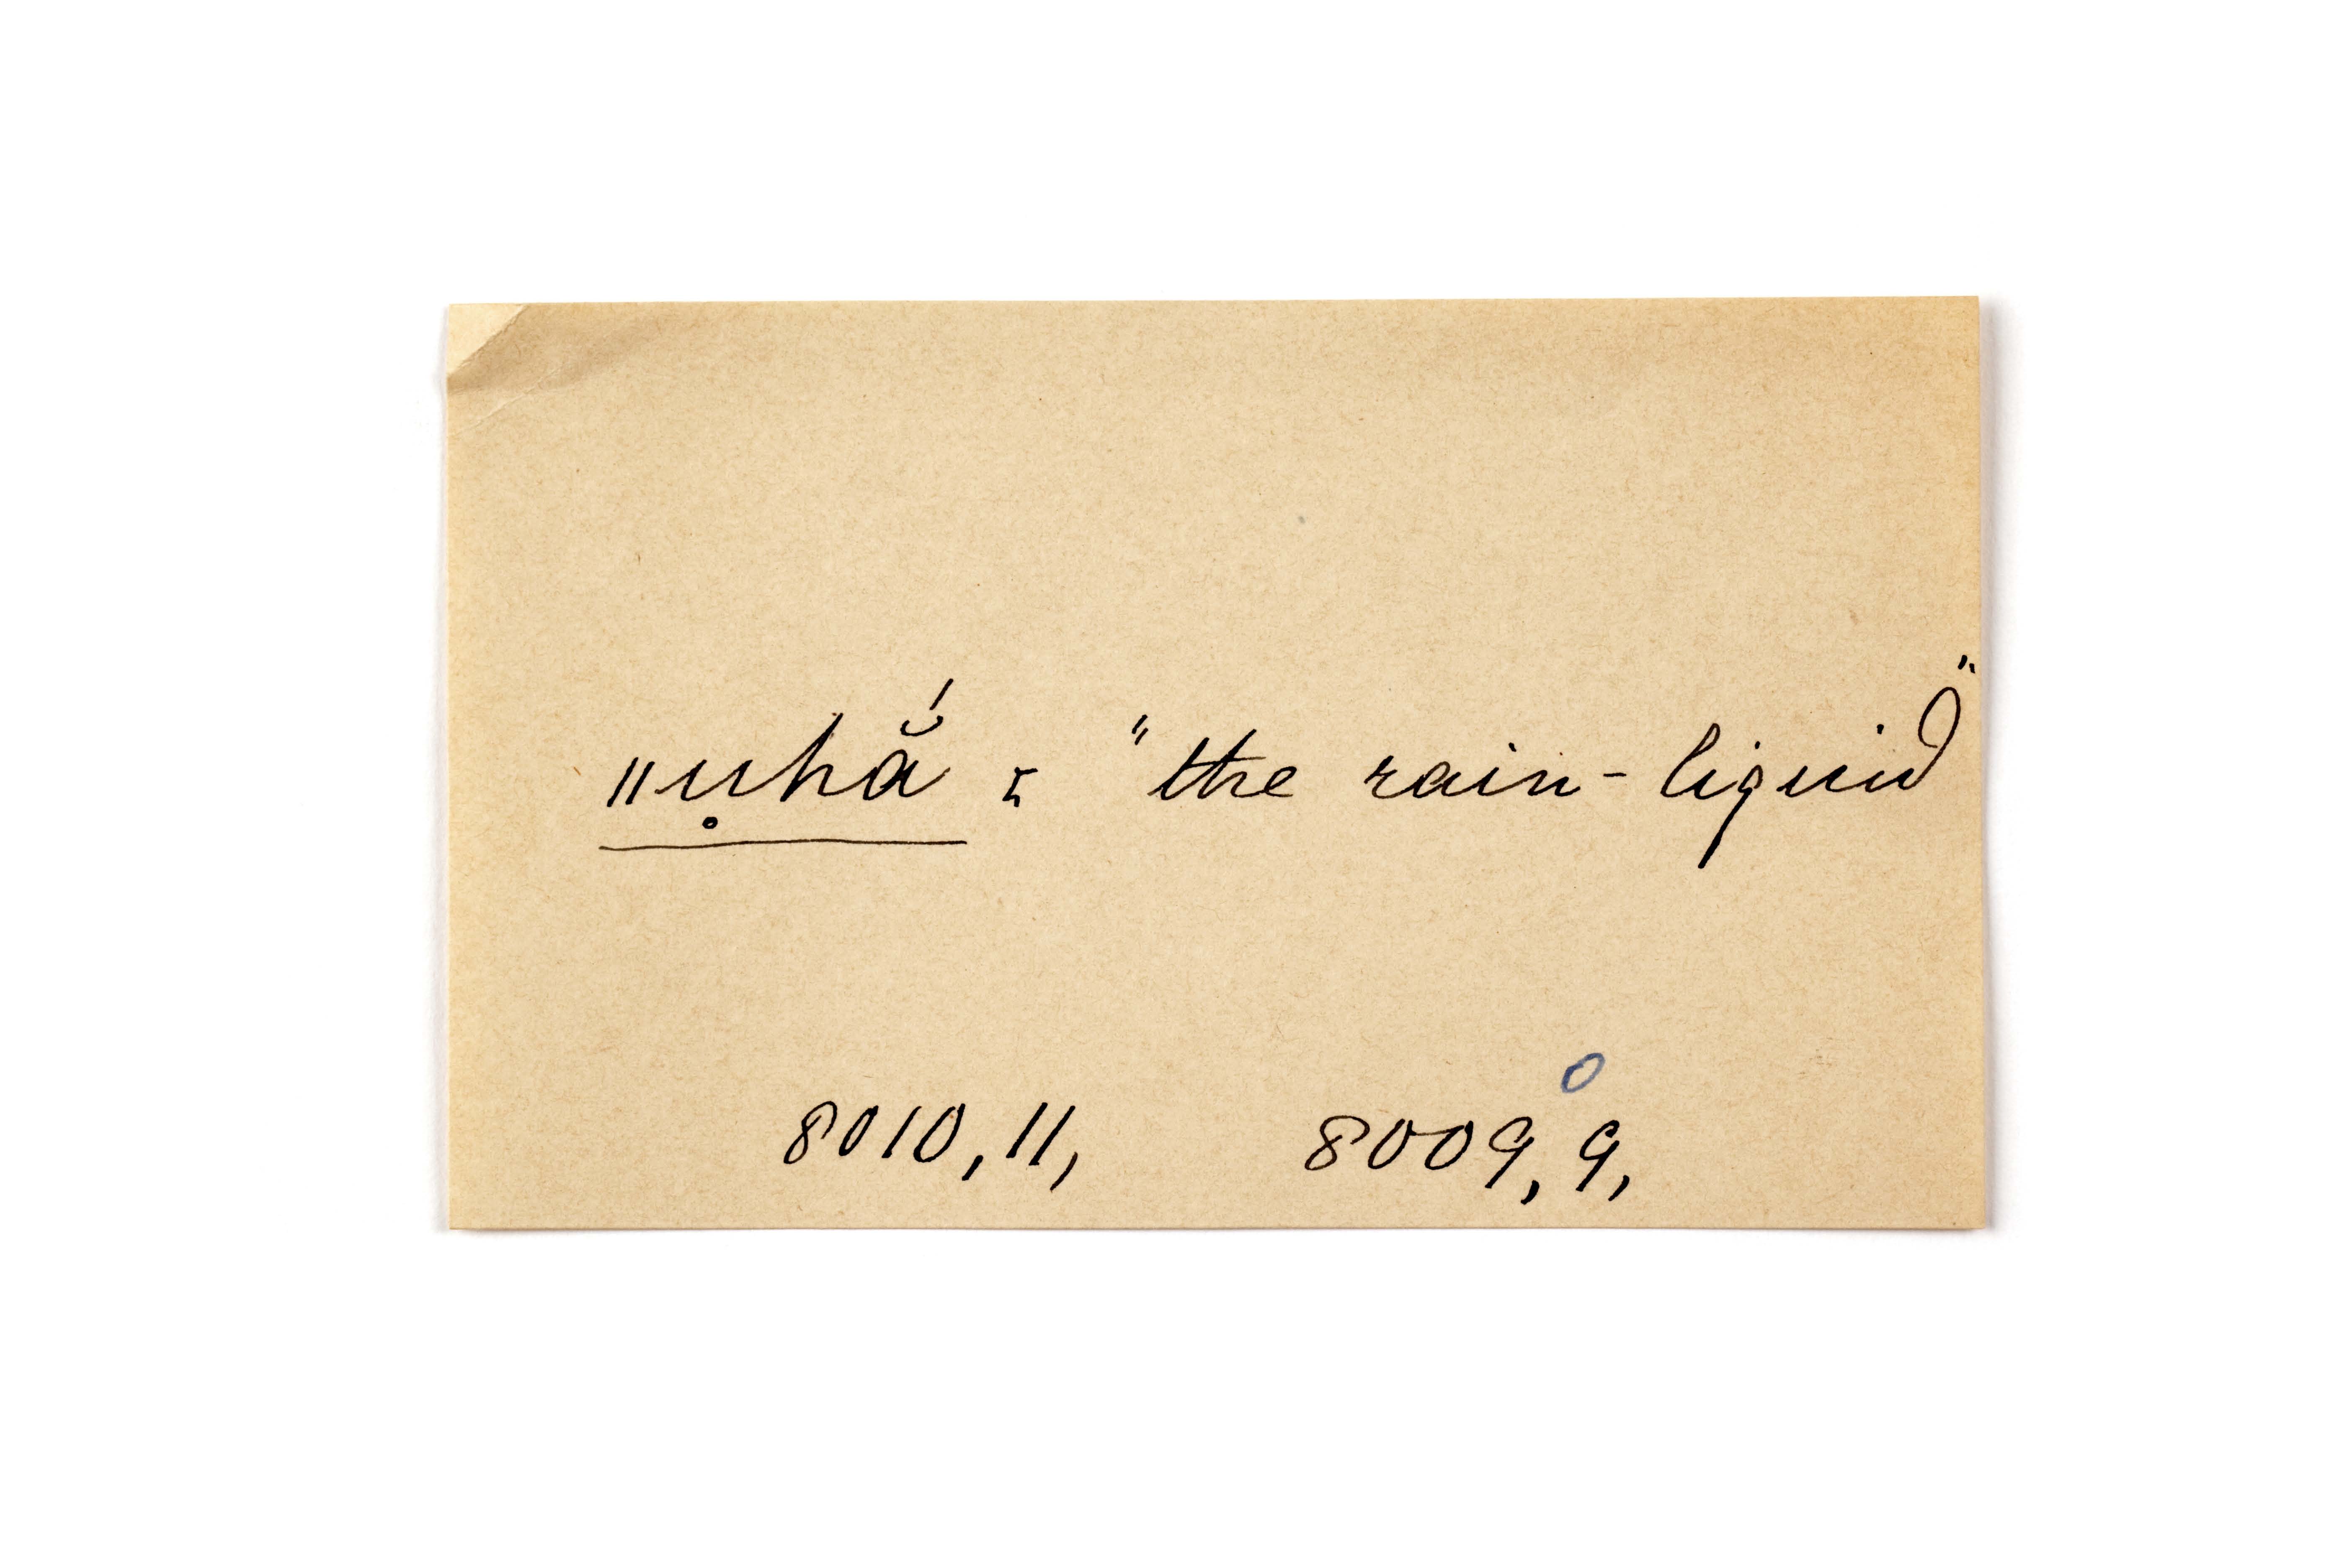 ǁu̥hắ = "the rain-liquid"
8010, 11, 8009, 9,